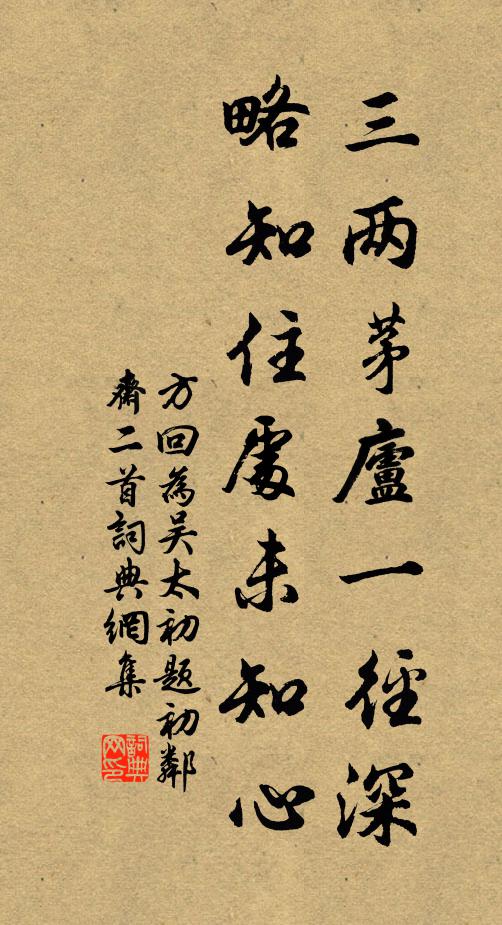 三两茅廬一徑深
略知住處未知心
方回為吴太初題初鄰
齋二首詞典網集
詞典網印